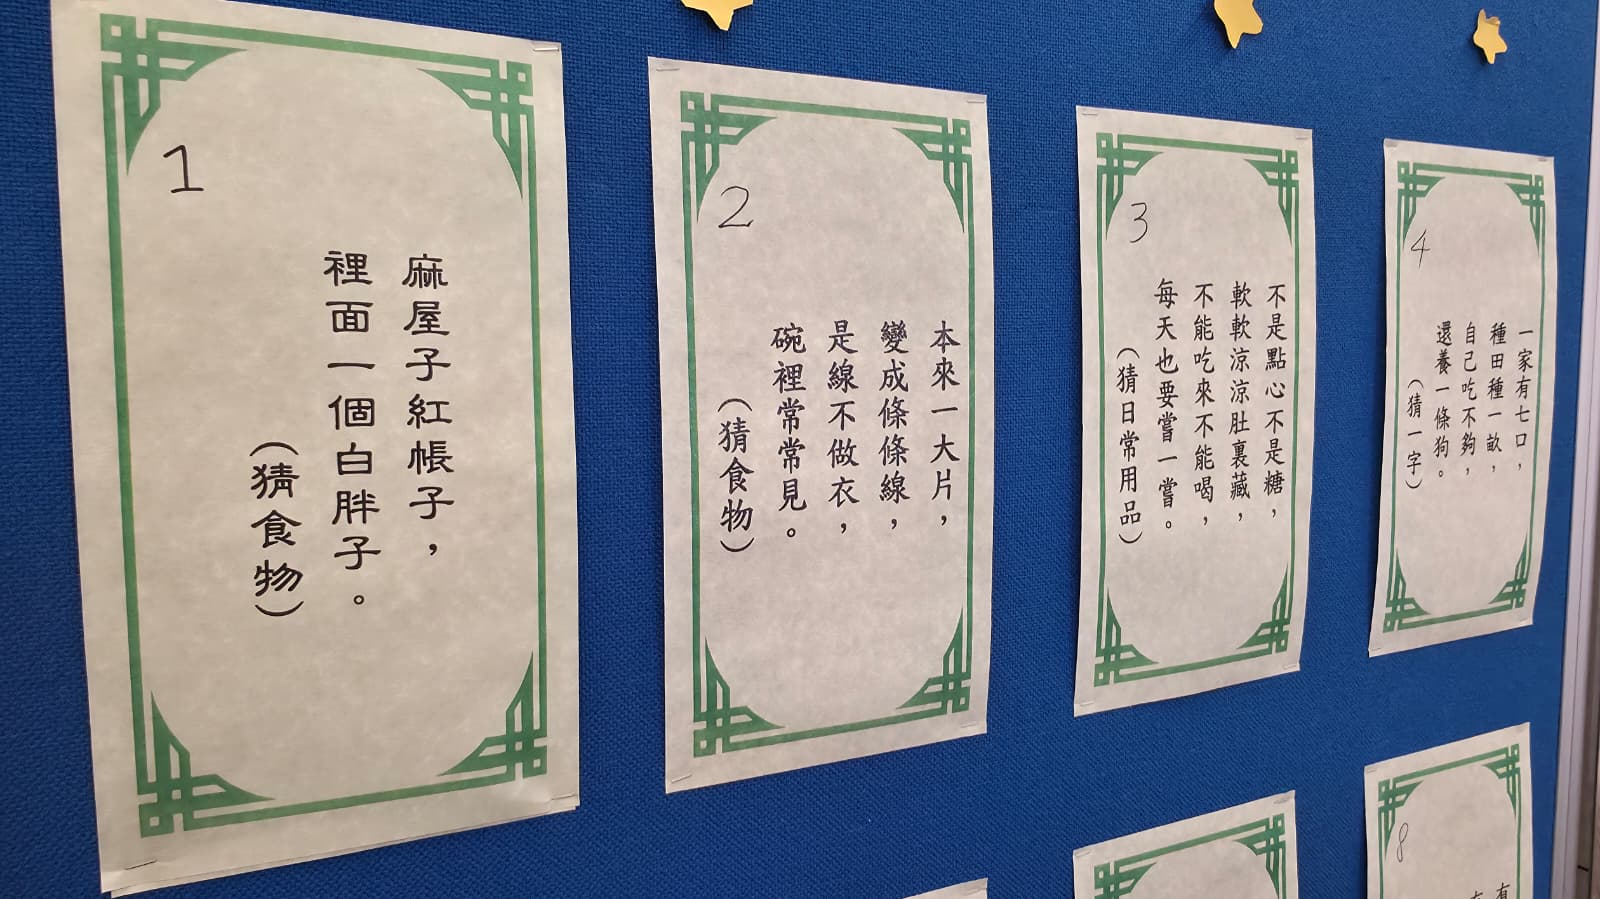 1
麻屋子紅帳子，
裡面一個白胖子。
（猜食物）
2
本來一大片，
變成條條線，
是線不做衣，
碗裡常常見。
（猜食物）
3
不是點心不是糖，
軟軟涼涼肚裏藏，
不能吃來不能喝，
每天也要嘗一嘗。
（猜日常用品）
4
一家有七口，
種田種一畝，
自己吃不夠，
還養一條狗。
（猜一字）
8
有